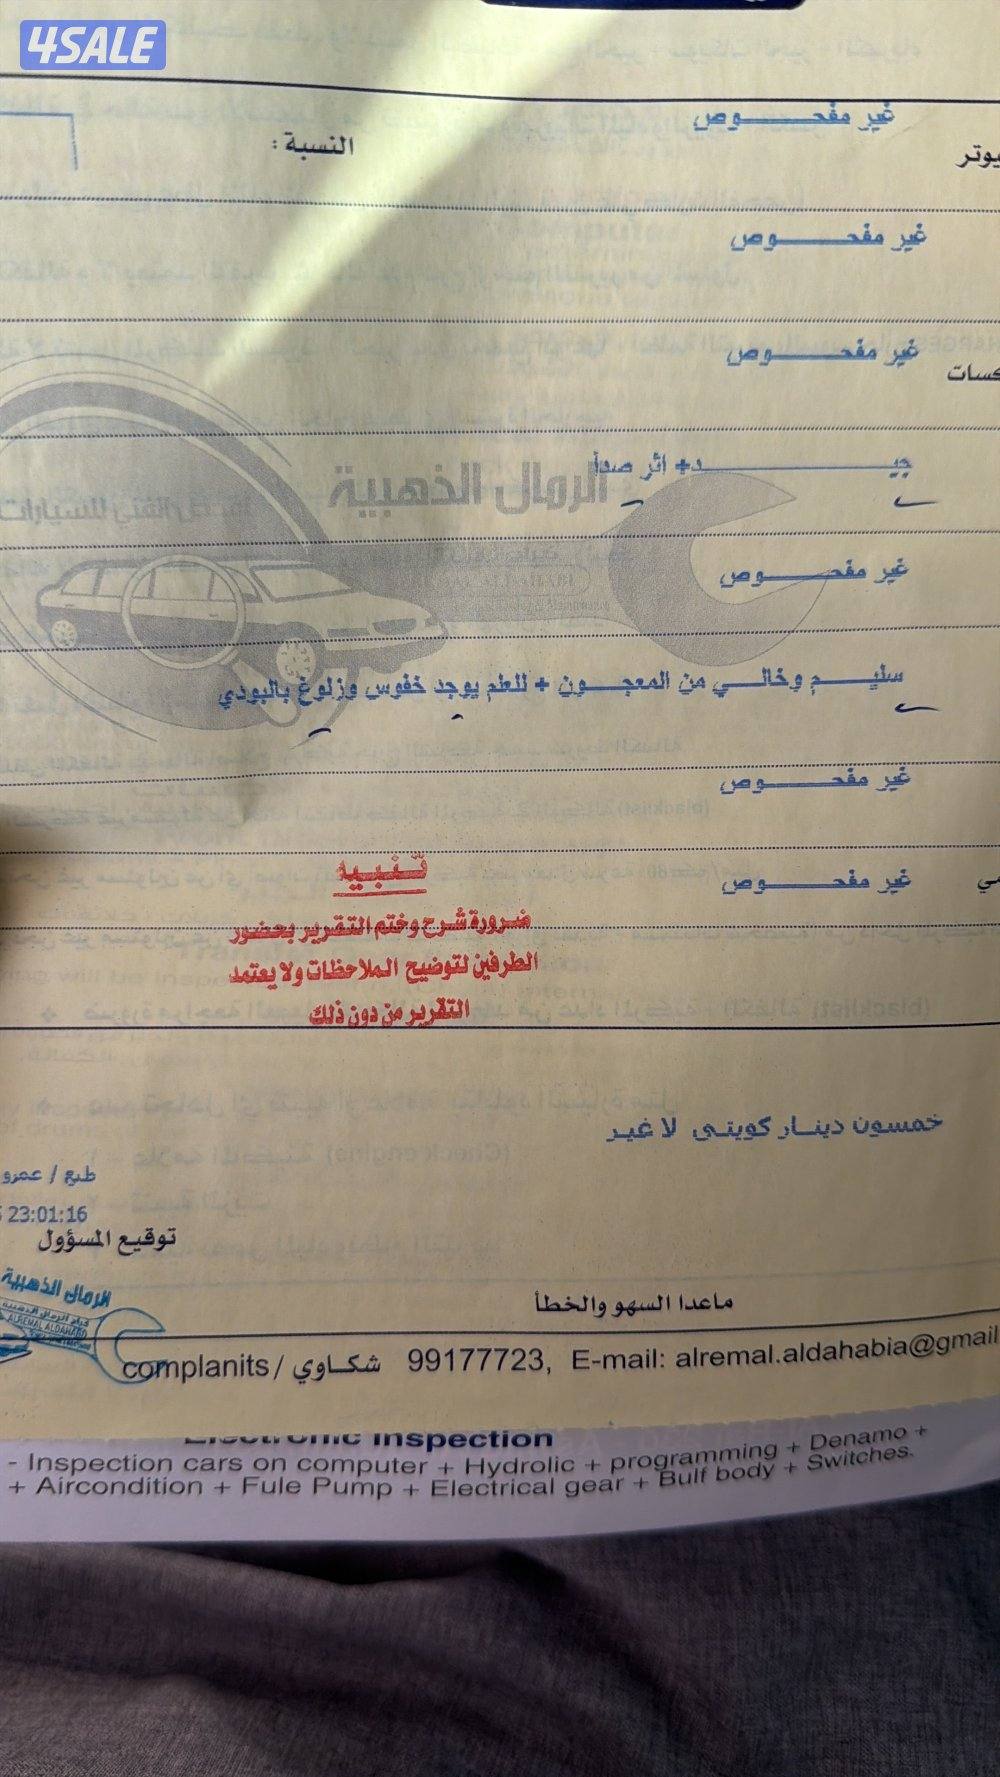 4SALE
غير مفحـــــوص
النسبة :
غير مفحـــــوص
غير مفحـــــوص
جيـــــــــد+ اثر صدأ
الرمال الذهبية
غير مفحـــــوص
سليـــم وخالـــي من المعجـــون + للعلم يوجد خفوس وزلوغ بالبودي
غير مفحـــــوص
غير مفحـــــوص
تنبيه
ضرورة شرح وختم التقرير بحضور
الطرفين لتوضيح الملاحظات ولا يعتمد
التقرير من دون ذلك
خمسون دينار كويتي لا غير
طبع / عمرو
23:01:16
توقيع المسؤول
الرمال الذهبية
ALREMAL ALDAHABIA
ماعدا السهو والخطأ
complanits / شكاوي 99177723, E-mail: alremal.aldahabia@gmail
Electronic Inspection
- Inspection cars on computer + Hydrolic + programming + Denamo +
+ Aircondition + Fule Pump + Electrical gear + Bulf body + Switches.